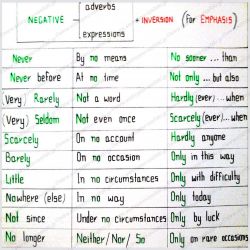 NEGATIVE adverbs expressions + INVERSION (for EMPHASIS)
Never By no means No sooner ... than
Never before At no time Not only ... but also
(Very) Rarely Not a word Hardly (ever) ... when
(Very) Seldom Not even once Scarcely (ever) ... when
Scarcely On no account Hardly anyone
Barely On no occasion Only in this way
Little In no circumstances Only with difficulty
Nowhere (else) In no way Only today
Not since Under no circumstances Only by luck
No longer Neither/Nor/So Only on rare occasions